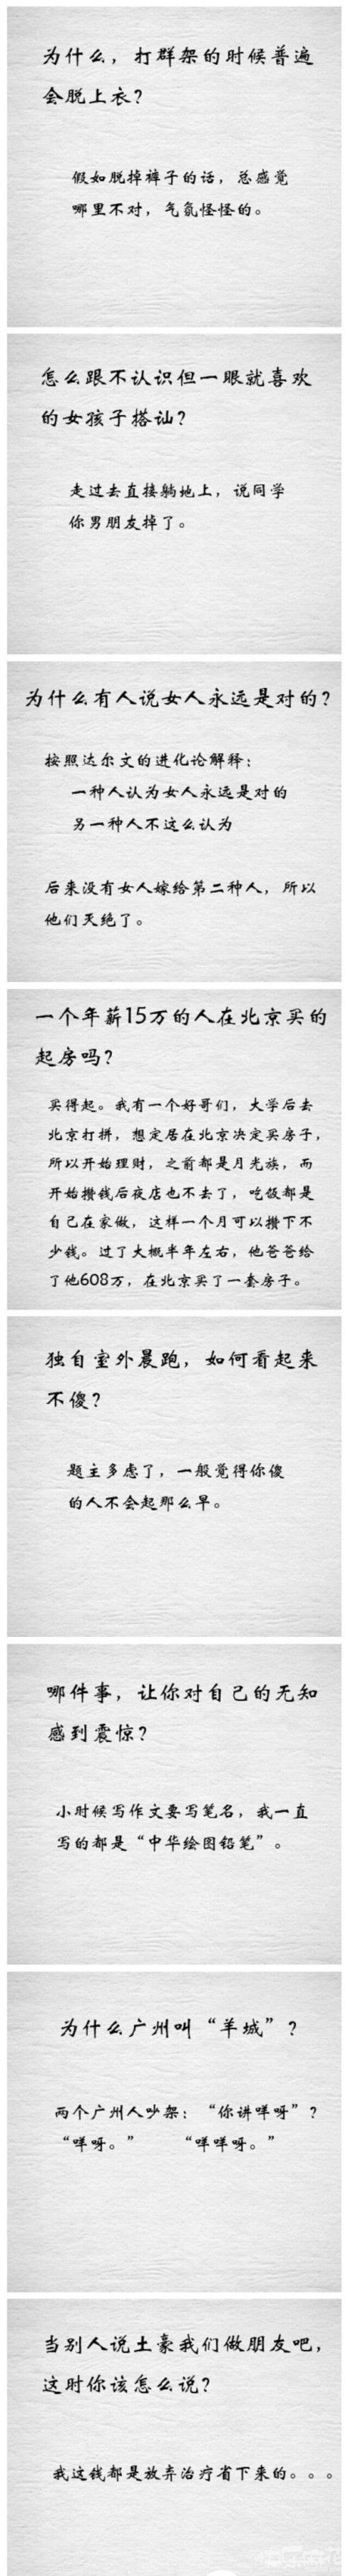 为什么，打群架的时候普遍
会脱上衣？
假如脱掉裤子的话，总感觉
哪里不对，气氛怪怪的。
怎么跟不认识但一眼就喜欢
的女孩子搭讪？
走过去直接躺地上，说同学
你男朋友掉了。
为什么有人说女人永远是对的？
按照达尔文的进化论解释：
一种人认为女人永远是对的
另一种人不这么认为
后来没有女人嫁给第二种人，所以
他们灭绝了。
一个年薪15万的人在北京买的
起房吗？
买得起。我有一个好哥们，大学后去
北京打拼，想定居在北京决定买房子，
所以开始理财，之前都是月光族，而
开始攒钱后夜店也不去了，吃饭都是
自己在家做，这样一个月可以攒下不
少钱。过了大概半年左右，他爸爸给
了他608万，在北京买了一套房子。
独自室外晨跑，如何看起来
不傻？
题主多虑了，一般觉得你傻
的人不会起那么早。
哪件事，让你对自己的无知
感到震惊？
小时候写作文要写笔名，我一直
写的都是“中华绘图铅笔”。
为什么广州叫“羊城”？
两个广州人吵架：“你讲咩呀”？
“咩呀。” “咩咩呀。”
当别人说土豪我们做朋友吧，
这时你该怎么说？
我这钱都是放弃治疗省下来的。。。